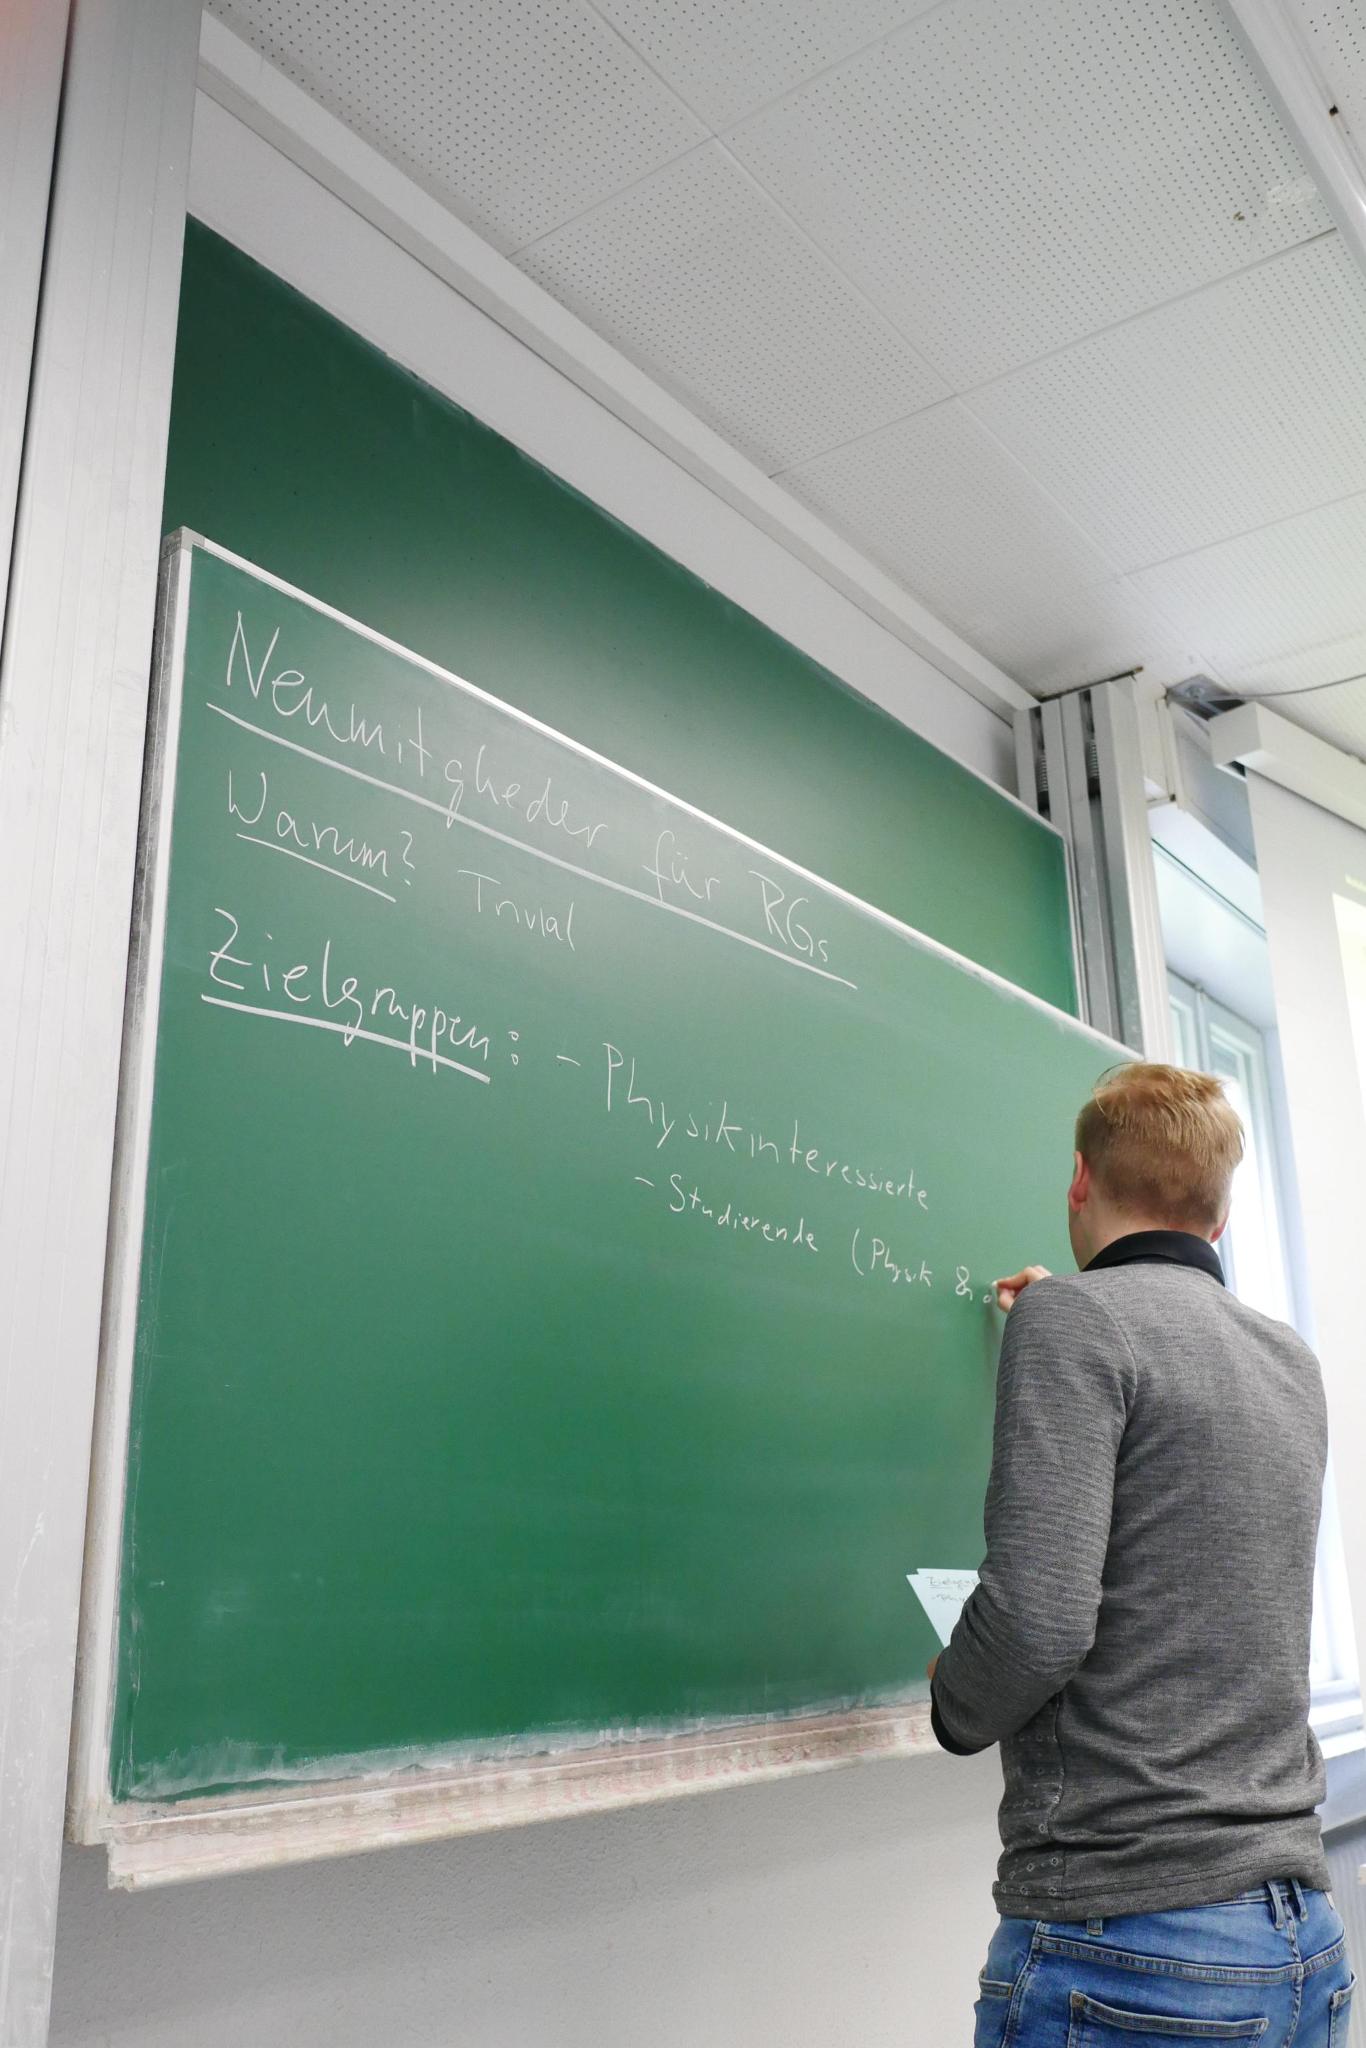 Neumitglieder für RGs
Warum? Trivial
Zielgruppen: - Physikinteressierte
- Studierende (Physik &